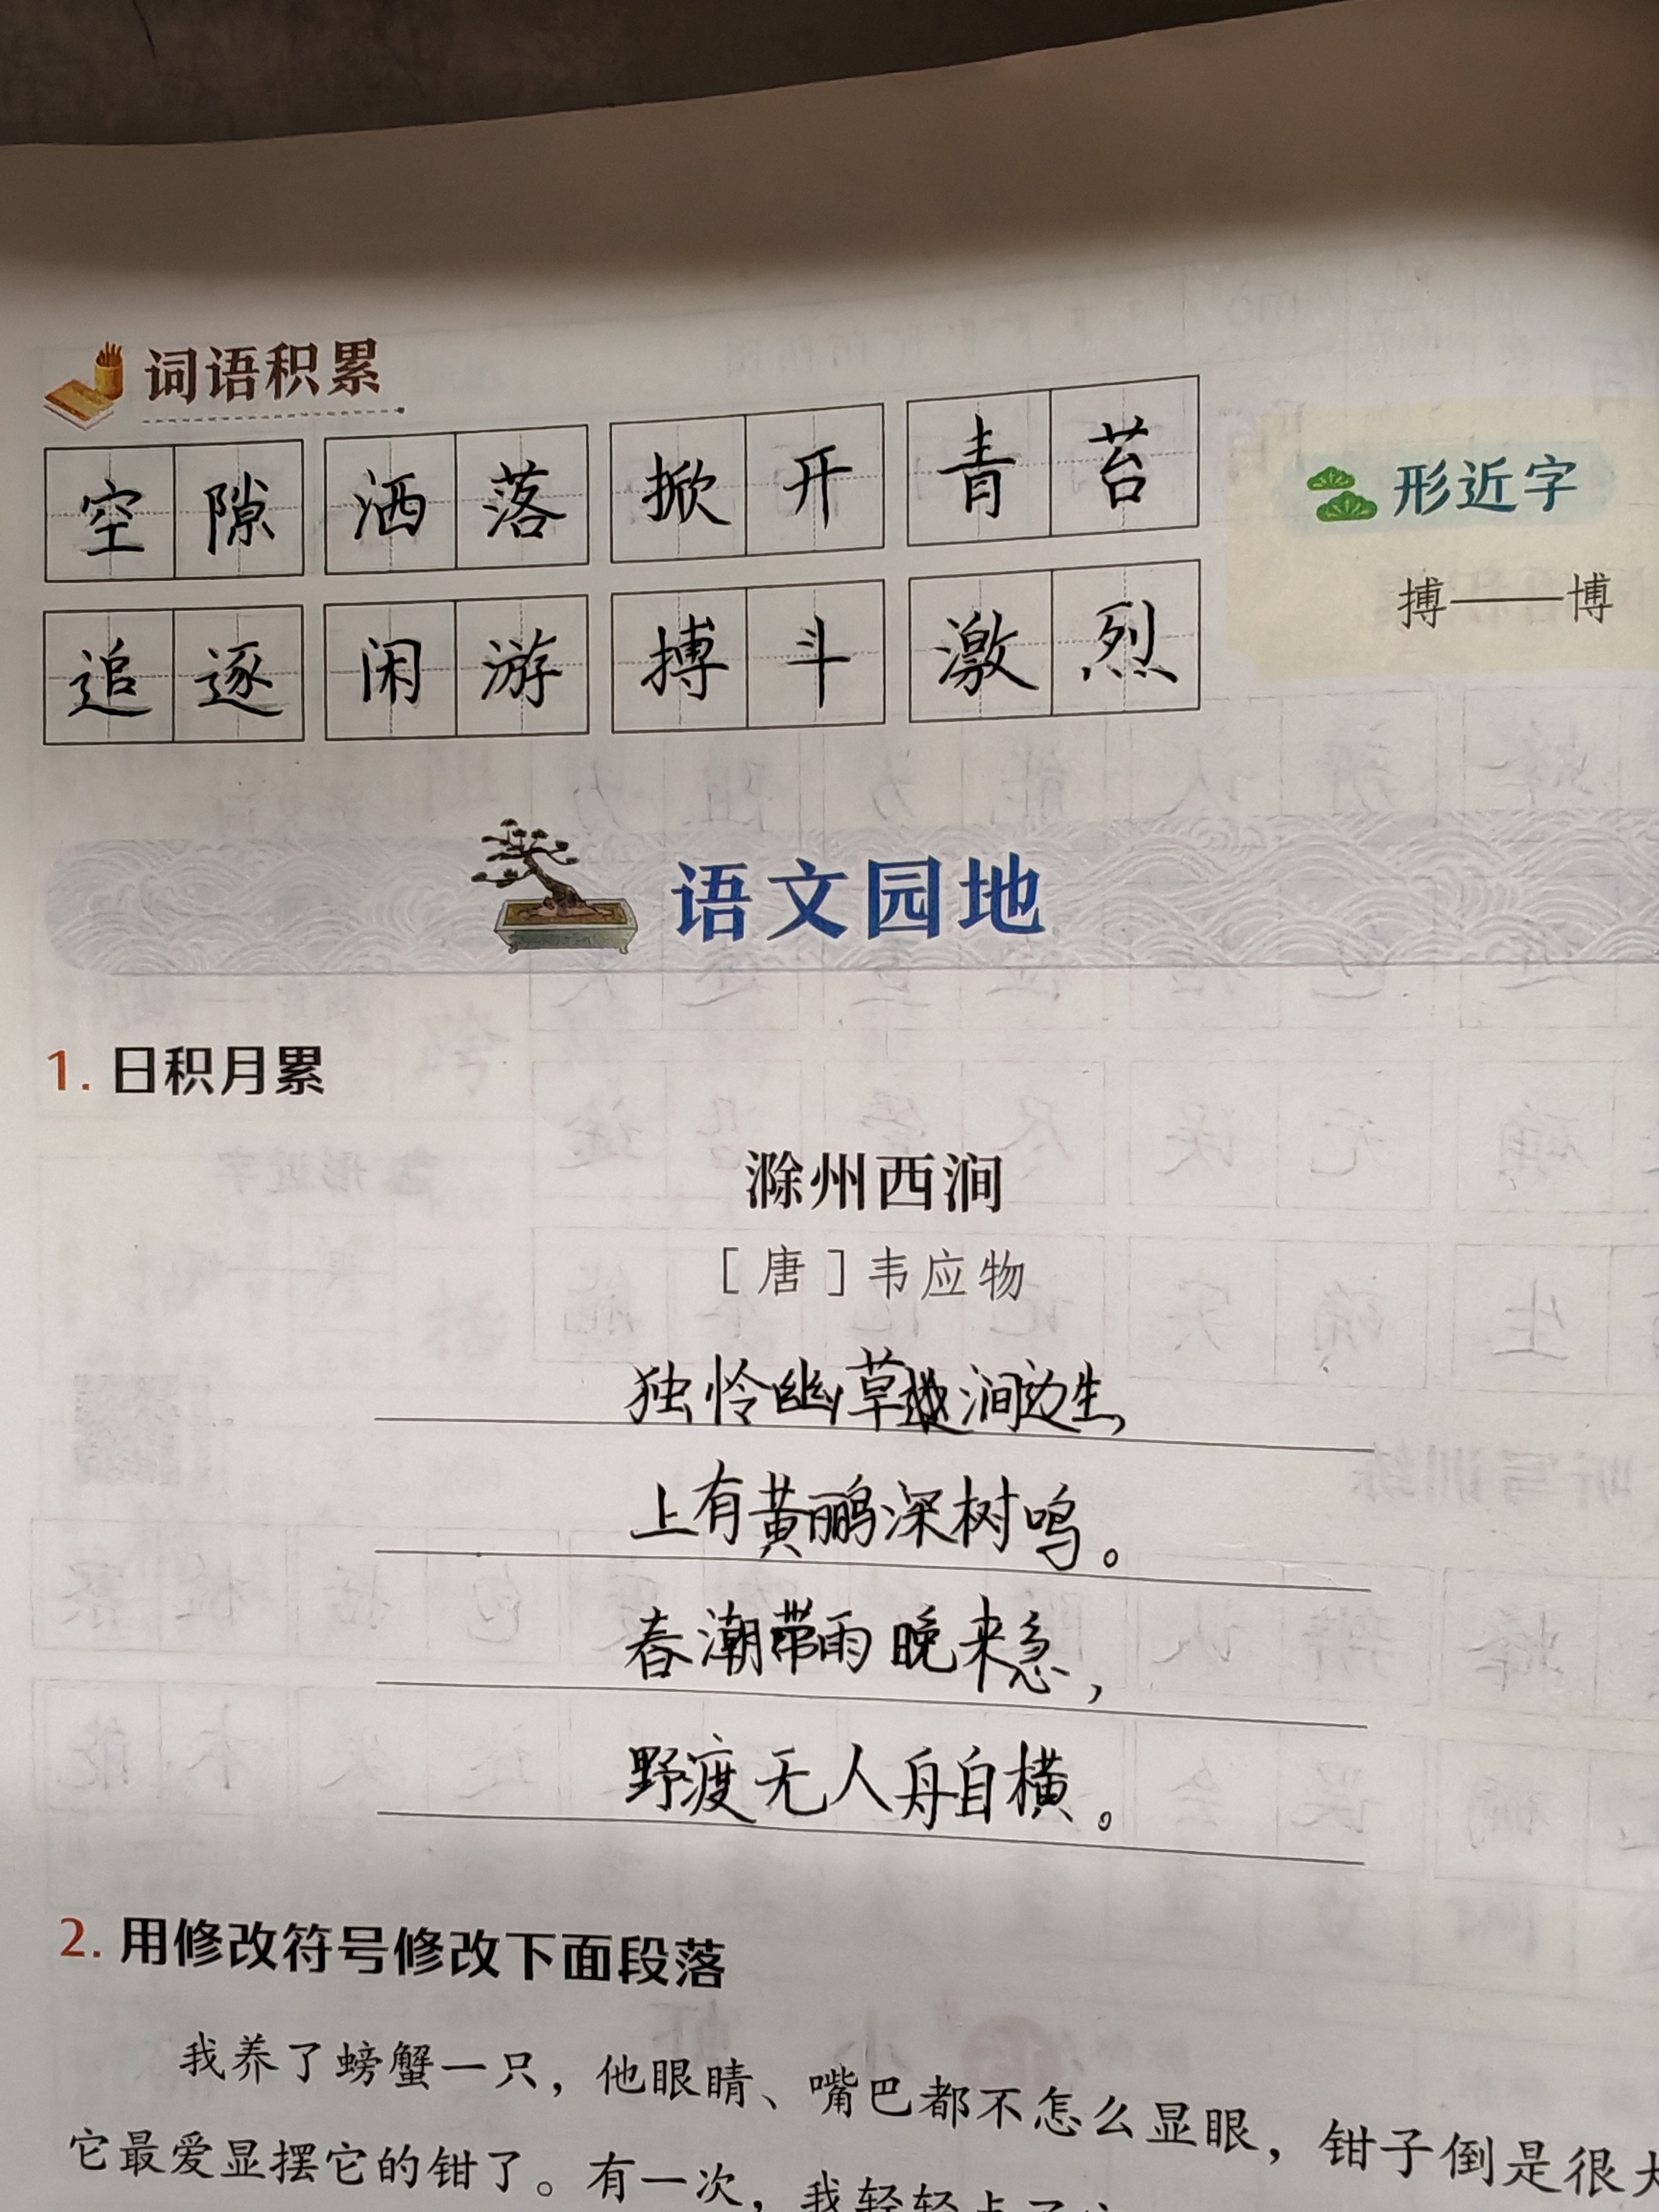 词语积累
空隙 洒落 掀开 青苔
形近字
搏——博
追逐 闲游 搏斗 激烈
语文园地
1. 日积月累
滁州西涧
［唐］韦应物
独怜幽草涧边生，
上有黄鹂深树鸣。
春潮带雨晚来急，
野渡无人舟自横。
2. 用修改符号修改下面段落
我养了螃蟹一只，他眼睛、嘴巴都不怎么显眼，钳子倒是很大
它最爱显摆它的钳了。有一次，我轻轻